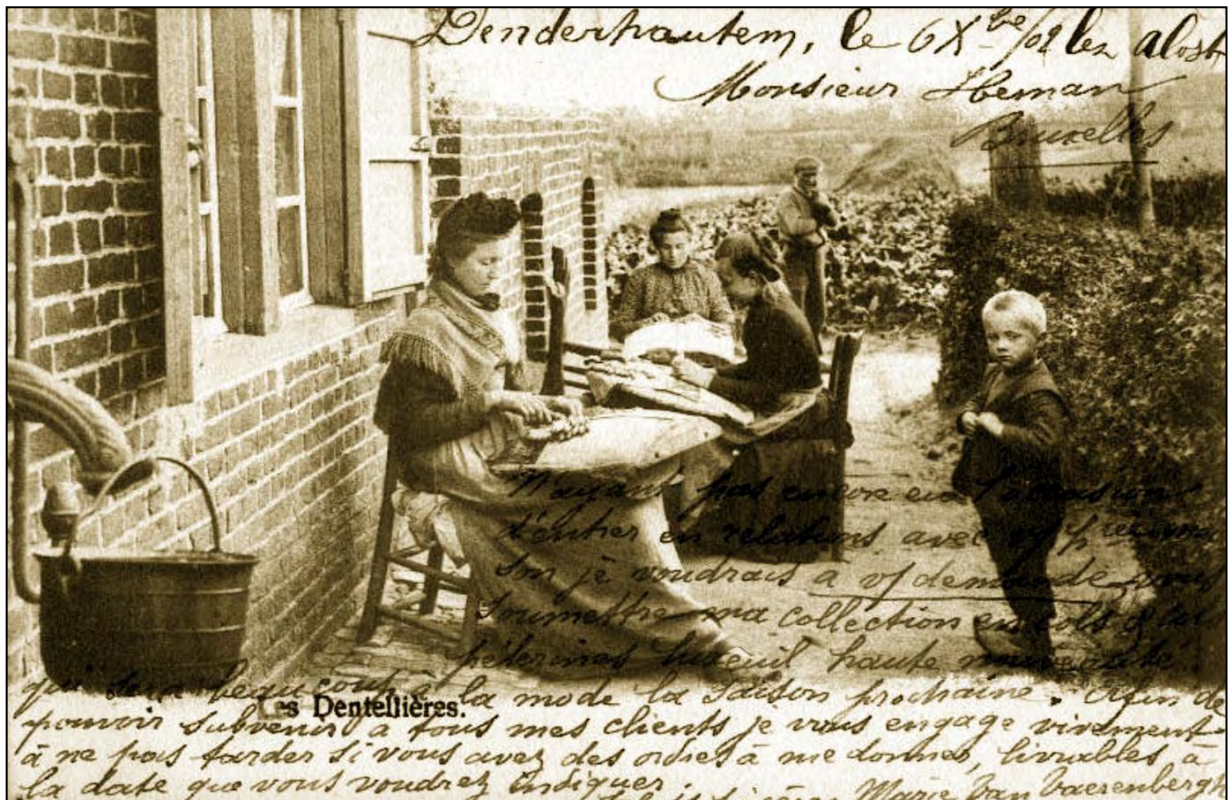 Denderhautem, le 6 Xbre/02 lez Alost
Monsieur Heman
Bruxelles
N'ayant pas encore eu l'occasion
d'entrer en relations avec
je voudrais à demande vous
soumettre ma collection en cols &
pèlerines luxeuil haute nouveauté
qui sera beaucoup à la mode la saison prochaine. Afin de
Les Dentellières.
pouvoir subvenir à tous mes clients je vous engage vivement
à ne pas tarder si vous avez des ordres à me donner, livrables à
la date que vous voudrez indiquer
Marie Van Vaerenbergh